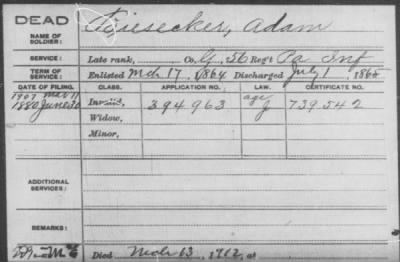 DEAD
NAME OF SOLDIER: Biesecker, Adam
SERVICE: Late rank, Co. G, 56 Reg't Pa Inf
TERM OF SERVICE: Enlisted Mch 17, 1864 Discharged July 1 1865
DATE OF FILING. CLASS. APPLICATION NO. LAW. CERTIFICATE NO.
1907 Mar 11 age
1880 June 30 Invalid, 394963 J 739542
Widow,
Minor,
ADDITIONAL SERVICES:
REMARKS:
Died Mch 13, 1912, at